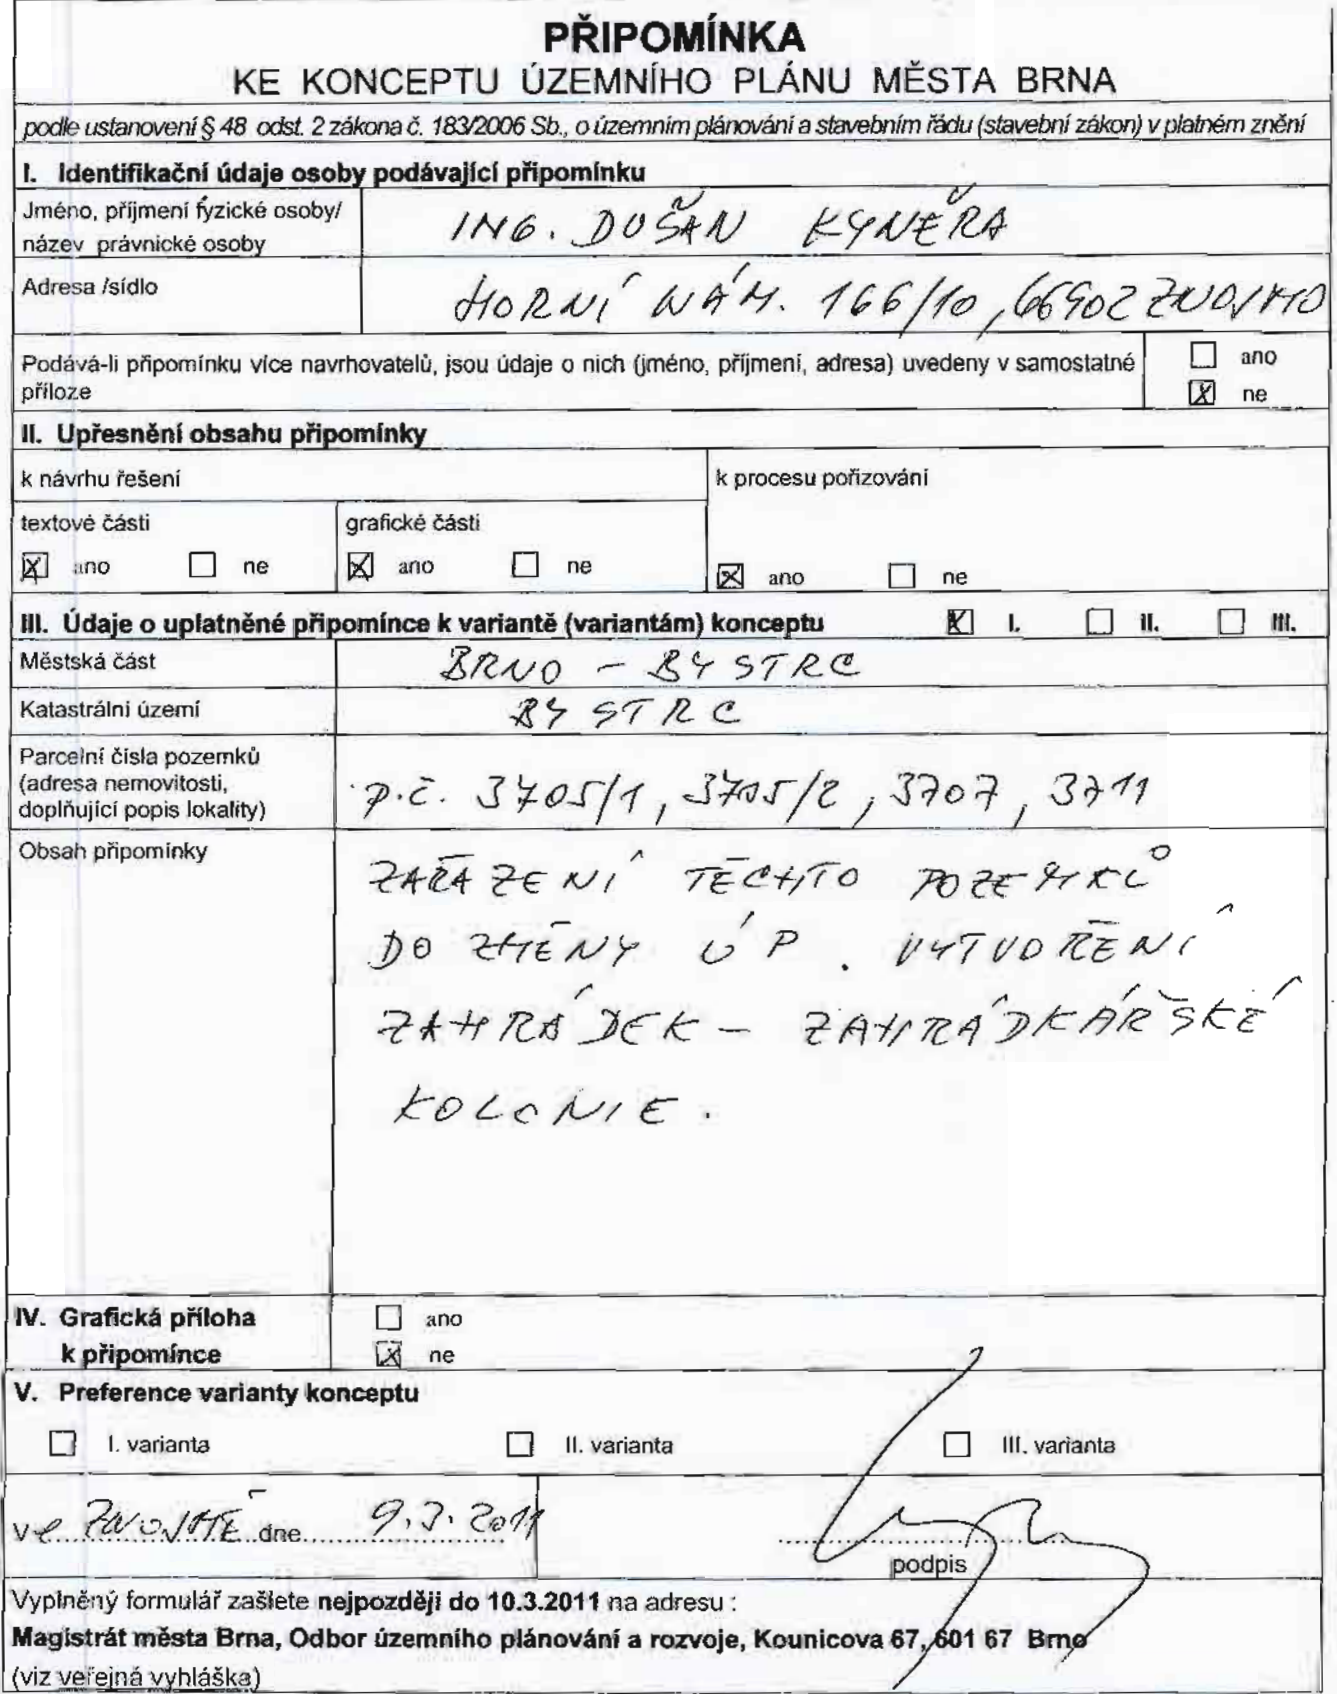 PŘIPOMÍNKA
KE KONCEPTU ÚZEMNÍHO PLÁNU MĚSTA BRNA
podle ustanovení § 48 odst. 2 zákona č. 183/2006 Sb., o územním plánování a stavebním řádu (stavební zákon) v platném znění
I. Identifikační údaje osoby podávající připomínku
Jméno, příjmení fyzické osoby/
název právnické osoby
ING. DUŠAN KYNĚRA
Adresa /sídlo
HORNÍ NÁM. 166/10, 66902 ZNOJMO
Podává-li připomínku více navrhovatelů, jsou údaje o nich (jméno, příjmení, adresa) uvedeny v samostatné
příloze
☐ ano
☒ ne
II. Upřesnění obsahu připomínky
k návrhu řešení
k procesu pořizování
textové části
grafické části
☒ ano ☐ ne
☒ ano ☐ ne
☒ ano ☐ ne
III. Údaje o uplatněné připomínce k variantě (variantám) konceptu ☒ I. ☐ II. ☐ III.
Městská část
BRNO - BYSTRC
Katastrální území
BYSTRC
Parcelní čísla pozemků
(adresa nemovitosti,
doplňující popis lokality)
p.č. 3705/1, 3705/2, 3707, 3711
Obsah připomínky
ZAŘAZENÍ TĚCHTO POZEMKŮ
DO ZMĚNY ÚP. VYTVOŘENÍ
ZAHRÁDEK - ZAHRÁDKÁŘSKÉ
KOLONIE.
IV. Grafická příloha
k připomínce
☐ ano
☒ ne
V. Preference varianty konceptu
☐ I. varianta ☐ II. varianta ☐ III. varianta
Ve ZNOJMĚ dne 9.3.2011
podpis
Vyplněný formulář zašlete nejpozději do 10.3.2011 na adresu :
Magistrát města Brna, Odbor územního plánování a rozvoje, Kounicova 67, 601 67 Brno
(viz veřejná vyhláška)